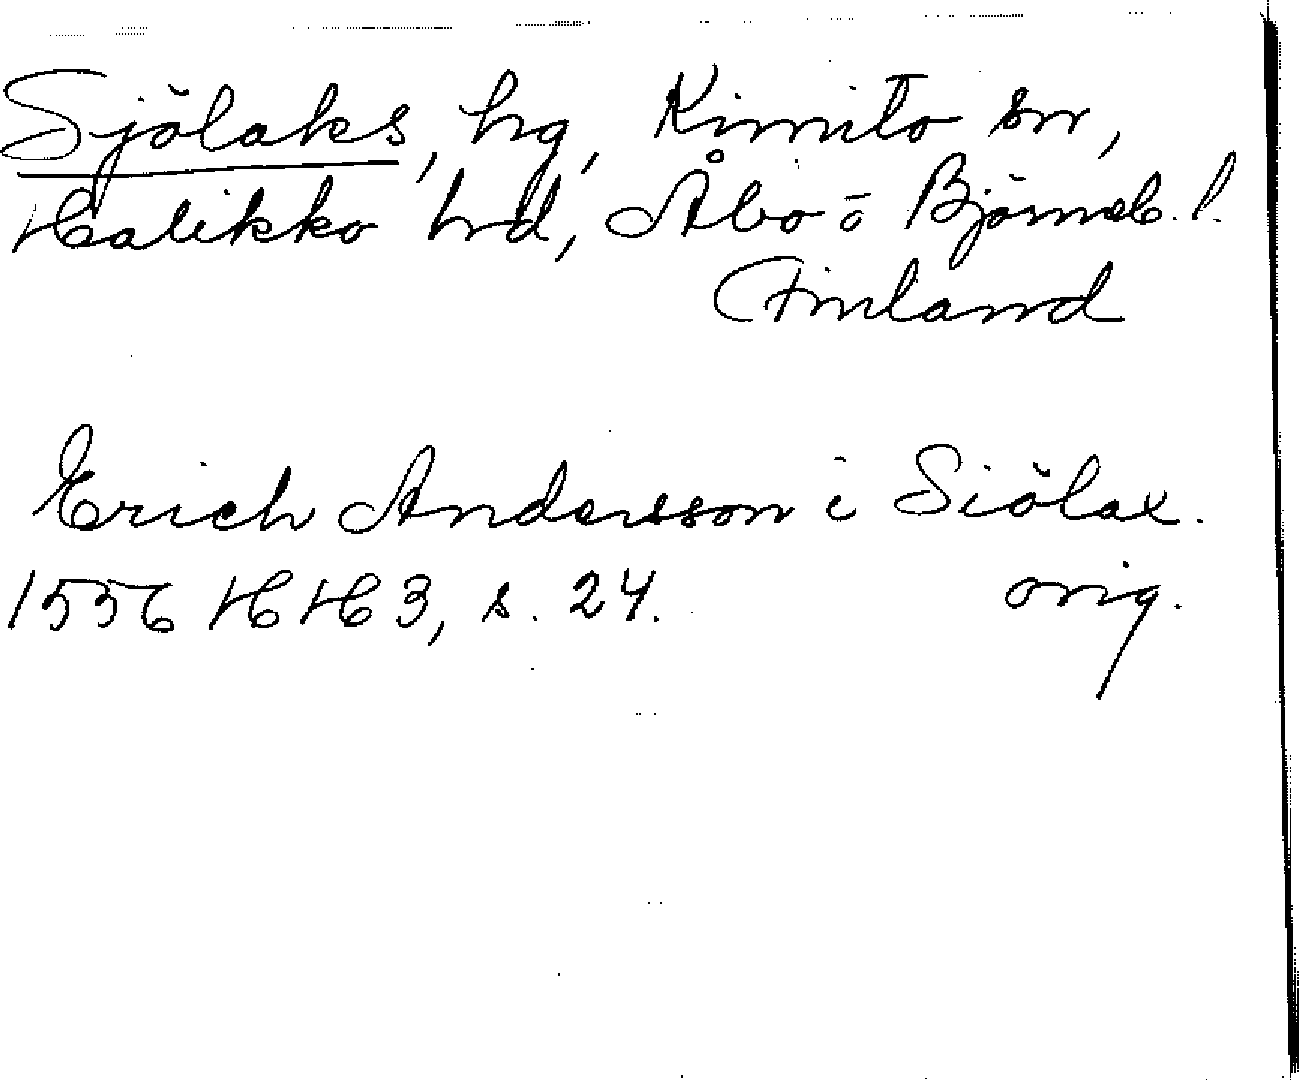 Sjölaks, hg, Kimito sn,
Halikko hrd, Åbo o Björneb. l.
Finland
Erich Andersson i Siölax.
1556 HH 3, s. 24. orig.